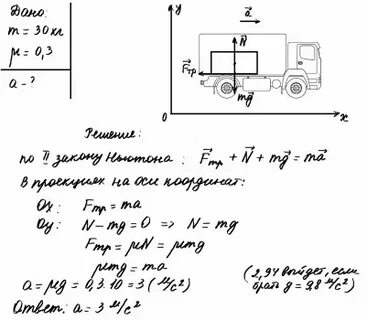 Дано:
m = 30 кг
μ = 0,3
a - ?
y
a⃗
N⃗
F⃗тр
mg⃗
0
x
Решение:
по II закону Ньютона: F⃗тр + N⃗ + mg⃗ = ma⃗
в проекциях на оси координат:
Ox: Fтр = ma
Oy: N - mg = 0 => N = mg
Fтр = μN = μmg
μmg = ma
a = μg = 0,3·10 = 3 (м/с²)
(2,94 выйдет, если
брать g = 9,8 м/с²)
Ответ: a = 3 м/с²